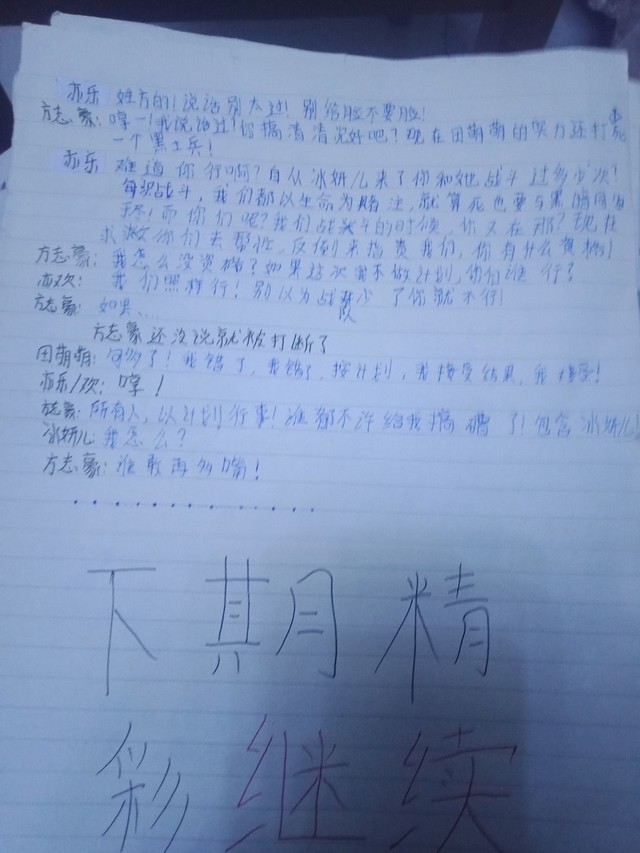 亦乐 姓方的!说话别太过!别给脸不要脸!
方志豪:哼一!我说话过!你搞清清况好吧?现在田萌萌的哭力还打死
一个黑士兵!
亦乐 难道你行啊?自从冰妍儿来了你和她战斗过多少次!
每次战斗,我们都以生命为赌注,就算死也要与黑暗同归
于尽!而你们呢?我们战斗的时候,你又在那?现在
求激你们去帮忙,反倒来指责我们,你有什么资格!
方志豪:我怎么没资格?如果这次我不做计划,你们谁行?
亦欢:我们照样行!别以为战队少了你就不行!
方志豪:如果....
方志豪还没说就被打断了
田萌萌:句多了!我错了,我错了,按计划,我接受结果,我接受!
亦乐/欢:哼!
方志豪:所有人,以计划行事!谁都不许给我搞 了!包含冰妍儿!
冰妍儿 我怎么?
方志豪:谁敢再多嘴!
..............
下期精
彩继续